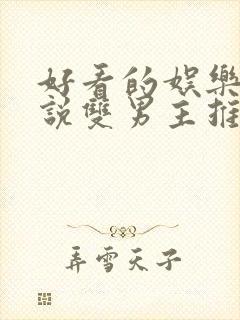 好看的娛樂
說雙男主推
弄雪天子